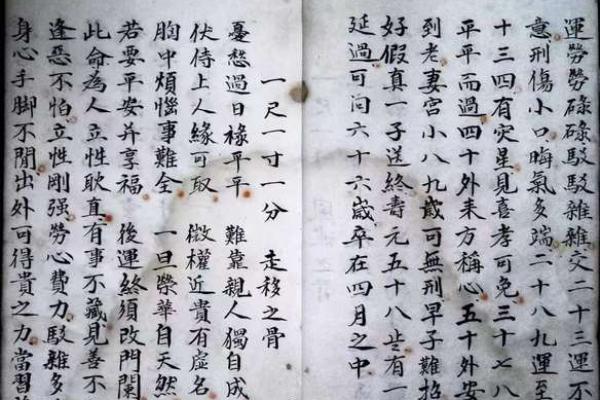 運勞勞碌碌駁駁雜雜交二十三運不
意刑傷小口晦氣多端二十八九運至
十三四有灾星見喜孝可免三十七八
平平而過四十外來方稱心五十外安
到老妻宮小八九歲可無刑早子難招
好假真一子送終壽元五十八歲有一
延過可問六十六歲卒在四月之中
一尺一寸一分 走移之骨
憂愁過日祿平平 難靠親人獨自成
伏侍上人緣可取 微權近貴有虛名
胸中煩惱事難全 一旦榮華自天然
若要平安并享福 後運終須改門闌
此命為人立性耿直有事不藏見善不
逢惡不怕立性剛强勞心費力駁雜多
身心手脚不閒出外可得貴之力當習